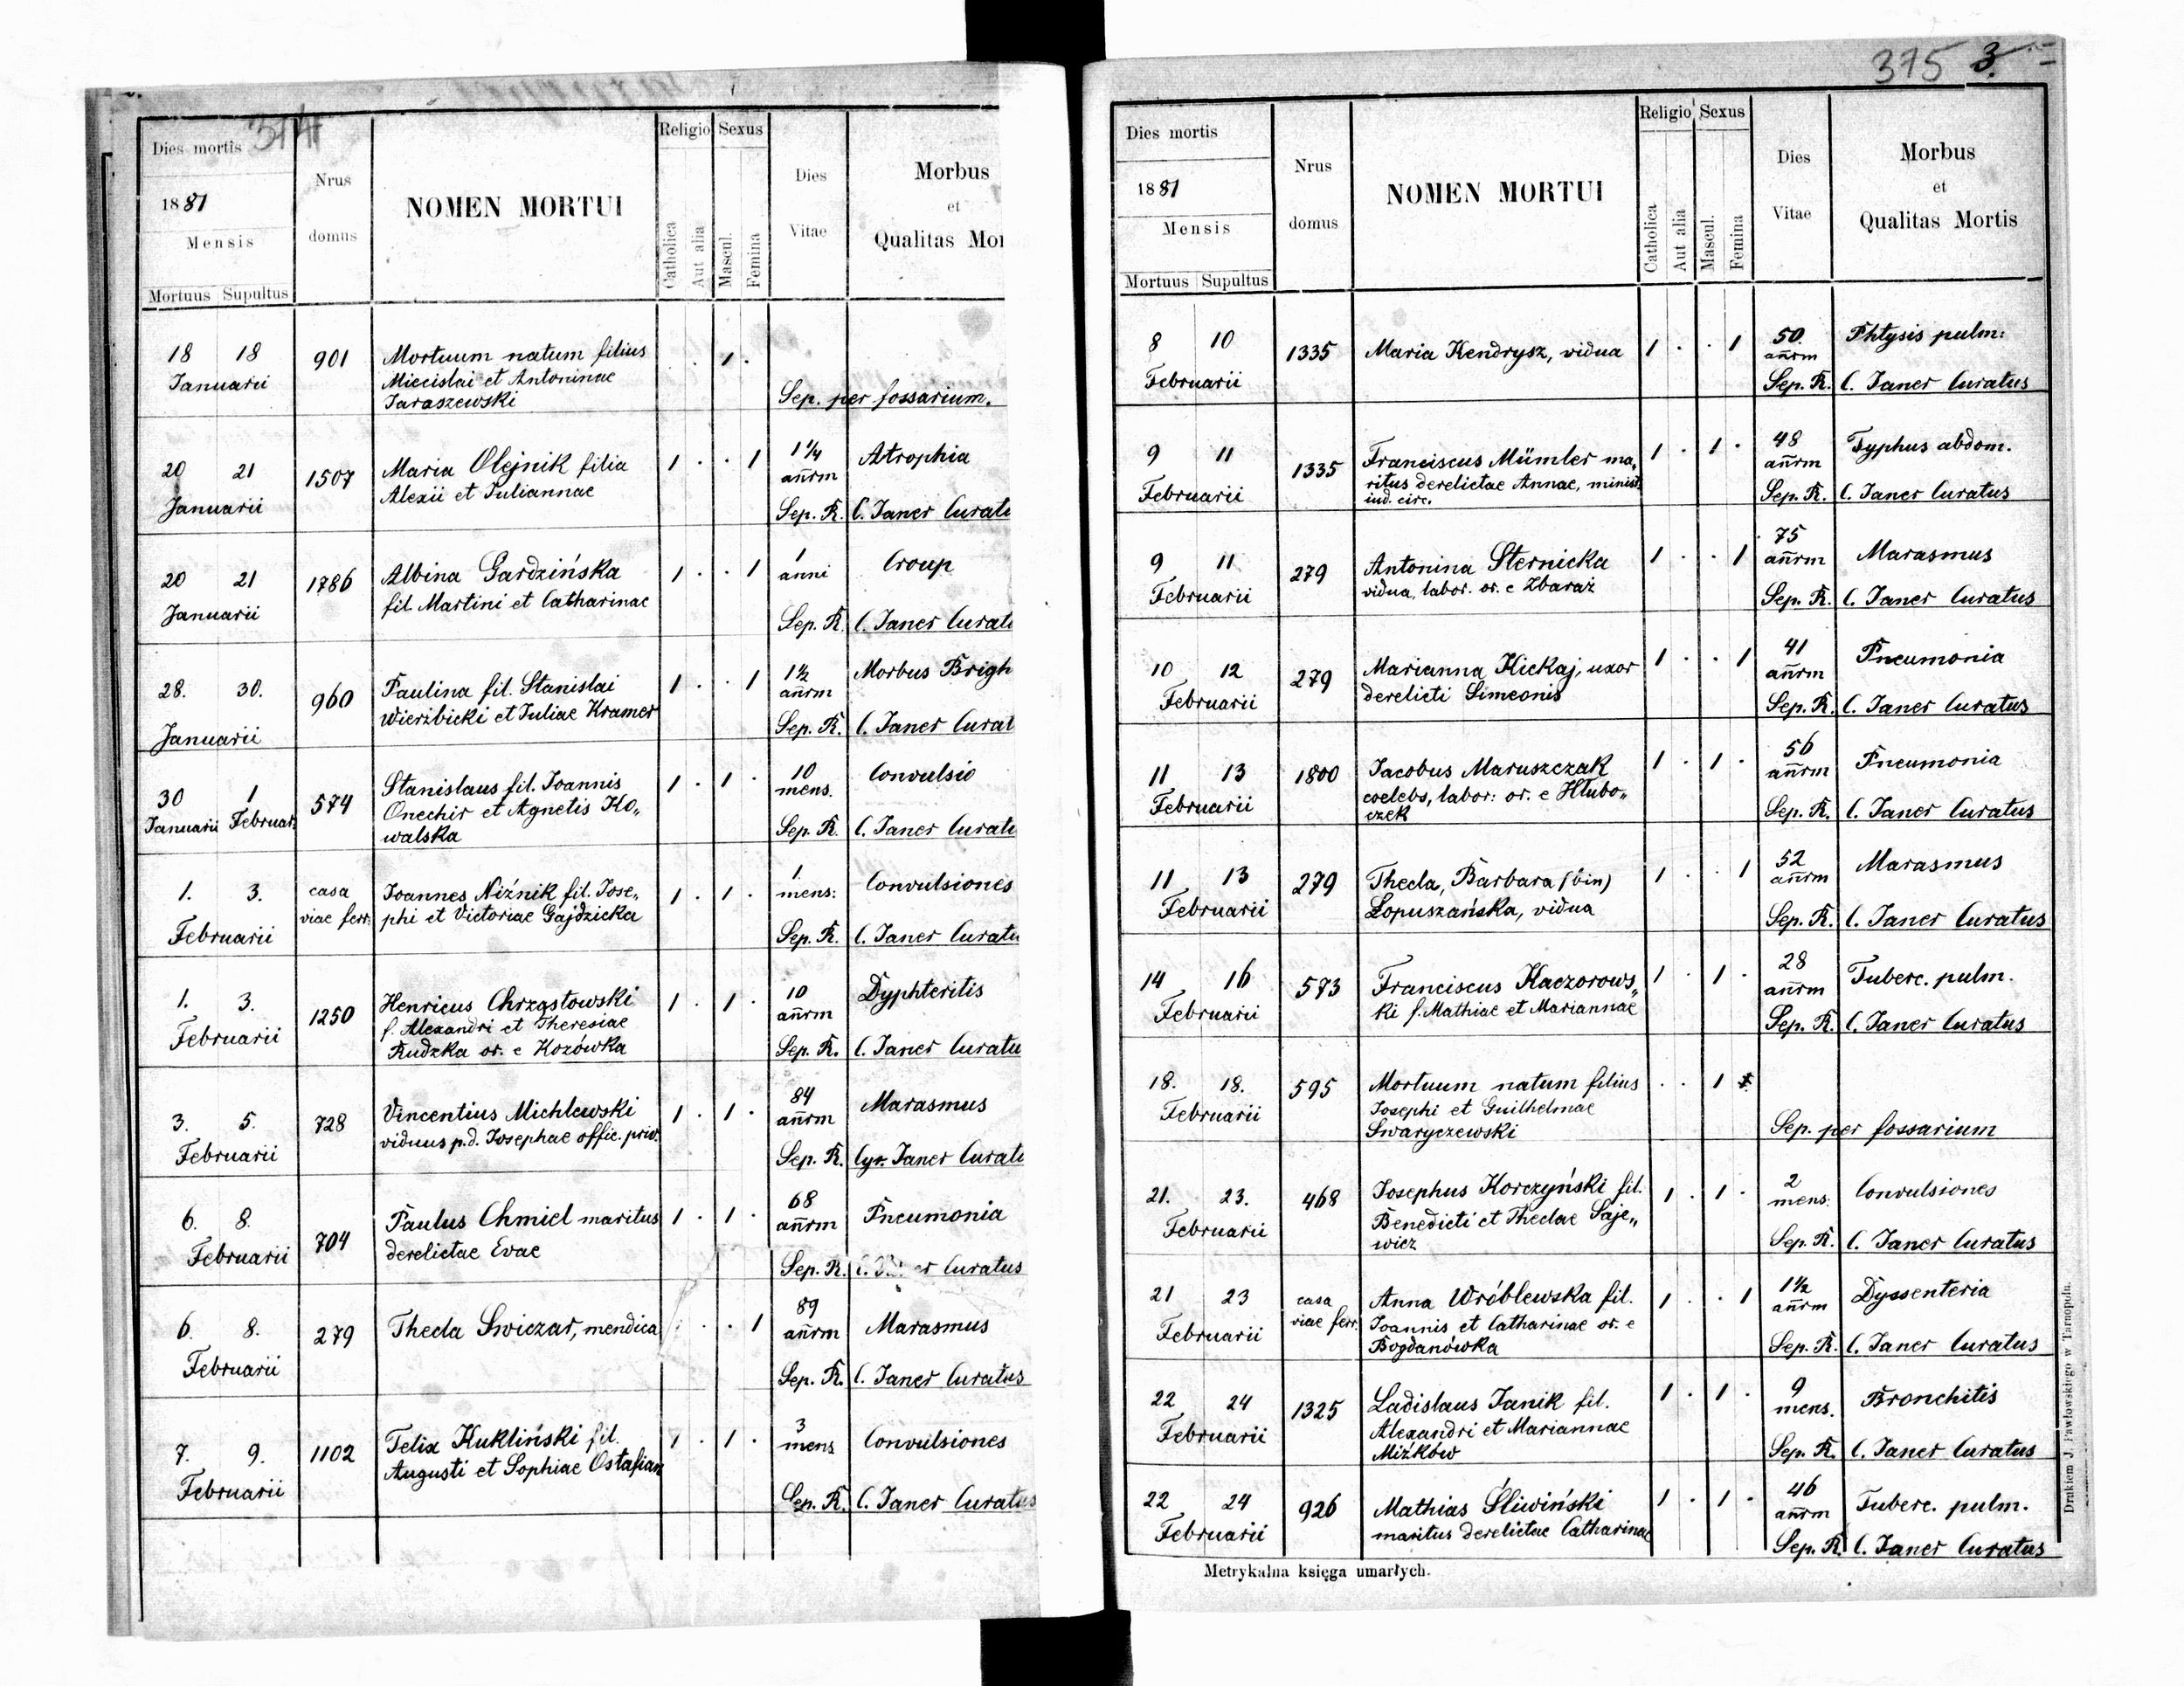 374
Dies mortis
1881
Mensis
Mortuus Supultus
Nrus
domus
NOMEN MORTUI
Religio Sexus
Catholica
Aut alia
Mascul.
Femina
Dies
Vitae
Morbus
et
Qualitas Mor
18 18
Januarii
901
Mortuum natum filius
Miecislai et Antoninae
Jaraszewski
1 ·
Sep. per fossarium.
20 21
Januarii
1507
Maria Olejnik filia
Alexii et Juliannae
1 · · 1
1 1/4
añrm
Atrophia
Sep. R. C. Janer Curat
20 21
Januarii
1786
Albina Gardzińska
fil. Martini et Catharinae
1 · · 1
1
anni
Croup
Sep. R. C. Janer Curat
28. 30.
Januarii
960
Paulina fil. Stanislai
Wierzbicki et Juliae Kramer
1 · · 1
1½
añrm
Morbus Brigh
Sep. R. C. Janer Curat
30 1
Januarii Februar
574
Stanislaus fil. Joannis
Onechir et Agnetis Ko„
walska
1 · 1 ·
10
mens.
Convulsio
Sep. R. C. Janer Curat
1. 3.
Februarii
casa
viae ferr.
Joannes Niźnik fil. Jose„
phi et Victoriae Gajdzicka
1 · 1 ·
1.
mens:
Convulsiones
Sep. R. C. Janer Curatu
1. 3.
Februarii
1250
Henricus Chrząstowski
f. Alexandri et Theresiae
Rudzka or. e Kozówka
1 · 1 ·
10
añrm
Dyphteritis
Sep. R. C. Janer Curatu
3. 5.
Februarii
728
Vincentius Michlewski
viduus p. d. Josephae offic. priv.
1 · 1 ·
84
añrm
Marasmus
Sep. R. Cyr. Janer Curat
6. 8.
Februarii
704
Paulus Chmiel maritus
derelictae Evae
1 · 1 ·
68
añrm
Pneumonia
Sep. R. C. Curatus
6. 8.
Februarii
279
Thecla Swiczar, mendica
· · 1
89
añrm
Marasmus
Sep. R. C. Janer Curatus
7. 9.
Februarii
1102
Felix Kukliński fil.
Augusti et Sophiae Ostafian
1 · 1 ·
3
mens
Convulsiones
Sep. R. C. Janer Curatus
375 3.
Dies mortis
1881
Mensis
Mortuus Supultus
Nrus
domus
NOMEN MORTUI
Religio Sexus
Catholica
Aut alia
Mascul.
Femina
Dies
Vitae
Morbus
et
Qualitas Mortis
8 10
Februarii
1335
Maria Kendrysz, vidua
1 · · 1
50.
añrm
Phtysis pulm:
Sep. R. C. Janer Curatus
9 11
Februarii
1335
Franciscus Mümler ma„
ritus derelictae Annae, minist.
iud. circ.
1 · 1 ·
48
añrm
Typhus abdom.
Sep. R. C. Janer Curatus
9 11
Februarii
279
Antonina Sternicka
vidua, labor. or. e Zbaraż
1 · · 1
75
añrm
Marasmus
Sep. R. C. Janer Curatus
10 12
Februarii
279
Marianna Kickaj, uxor
derelicti Simeonis
1 · · 1
41
añrm
Pneumonia
Sep. R. C. Janer Curatus
11 13
Februarii
1800
Jacobus Maruszczak
coelebs, labor: or. e Hłubo„
czek
1 · 1 ·
56
añrm
Pneumonia
Sep. R. C. Janer Curatus
11 13
Februarii
279
Thecla, Barbara (bin)
Łopuszańska, vidua
1 · · 1
52
añrm
Marasmus
Sep. R. C. Janer Curatus
14 16
Februarii
573
Franciscus Kaczorows„
ki f. Mathiae et Mariannae
1 · 1 ·
28
añrm
Tuberc. pulm.
Sep. R. C. Janer Curatus
18. 18.
Februarii
595
Mortuum natum filius
Josephi et Guilhelmae
Swaryczewski
· · 1
Sep. per fossarium
21. 23.
Februarii
468
Josephus Korczyński fil.
Benedicti et Theclae Saje„
wicz
1 · 1 ·
2
mens.
Convulsiones
Sep. R. C. Janer Curatus
21 23
Februarii
casa
viae ferr.
Anna Wróblewska fil.
Joannis et Catharinae or. e
Bogdanówka
1 · · 1
1½
añrm
Dyssenteria
Sep. R. C. Janer Curatus
22 24
Februarii
1325
Ladislaus Janik fil.
Alexandri et Mariannae
Miźków
1 · 1 ·
9
mens.
Bronchitis
Sep. R. C. Janer Curatus
22 24
Februarii
926
Mathias Śliwiński
maritus derelictae Catharinae
1 · 1 ·
46
añrm
Tuberc. pulm.
Sep. R. C. Janer Curatus
Metrykalna księga umarłych.
Drukiem J. Pawłowskiego w Tarnopolu.